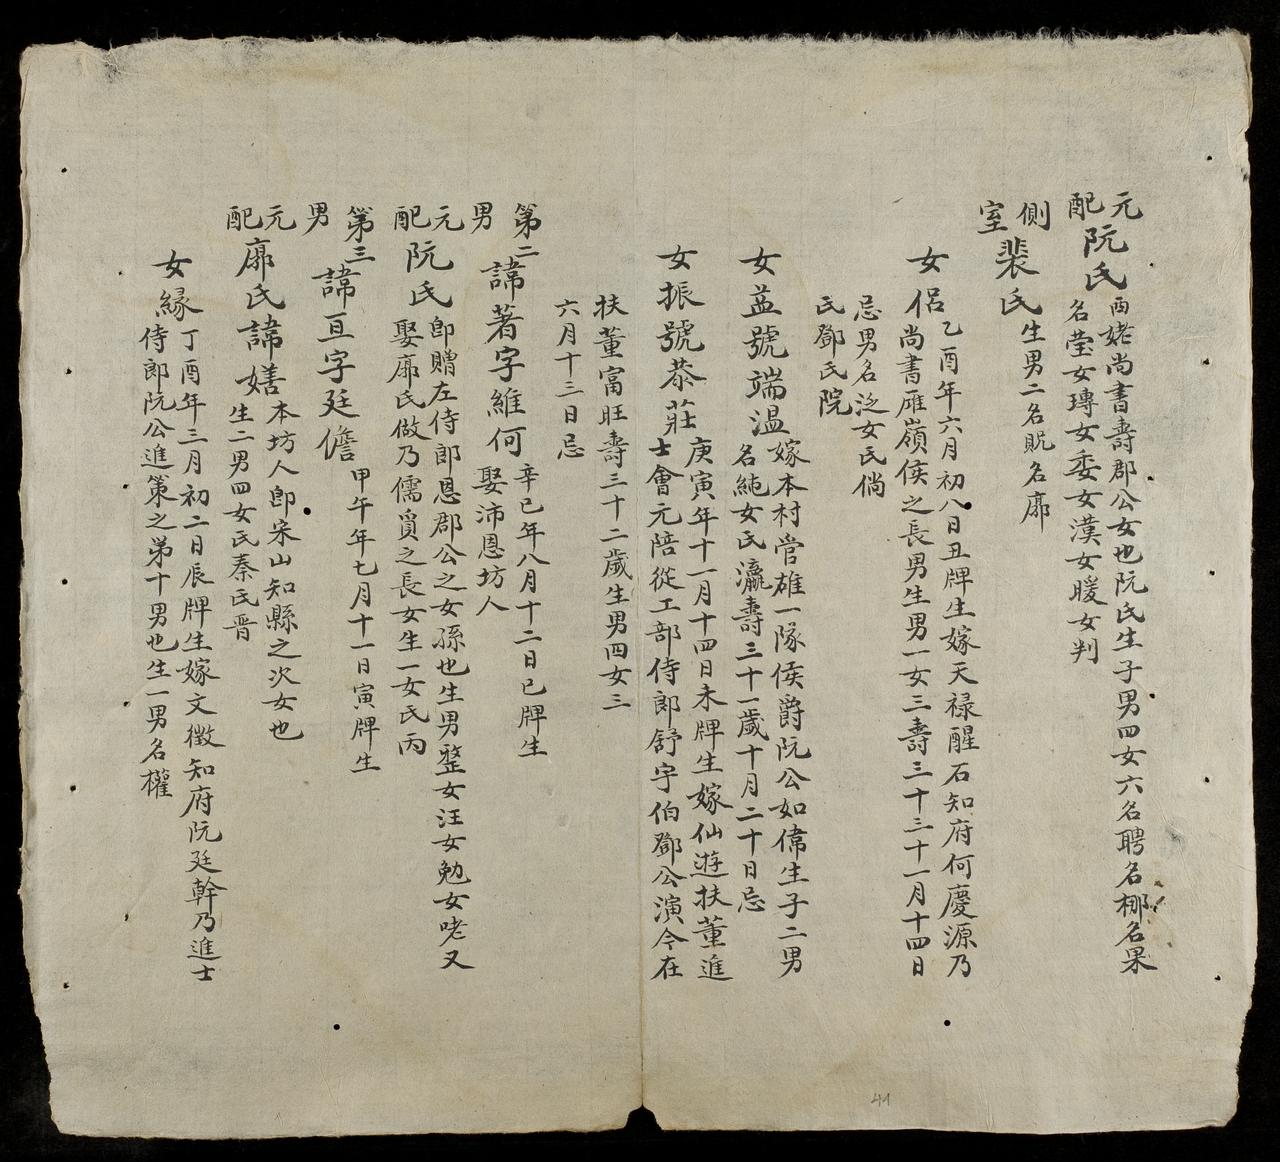 元配阮氏
西姥尚書壽郡公女也阮氏生子男四女六名聘名梛名果
名瑩女瑼女委女漢女暖女判
側室裴氏
生男二名貺名廓
女侶
乙酉年六月初八日丑牌生嫁天禄醒石知府何慶源乃
尚書雁嶺侯之長男生男一女三壽三十三十一月十四日
忌男名泛女氏倘
氏鄧氏院
女益號端温
嫁本村管雄一隊侯爵阮公如偉生子二男
名純女氏瀛壽三十一歲十月二十日忌
女振號恭莊
庚寅年十一月十四日未牌生嫁仙遊扶董進
士會元陪從工部侍郎舒字伯鄧公演今在
扶董富旺壽三十二歲生男四女三
六月十三日忌
第二男諱著字維何
辛巳年八月十二日巳牌生
娶沛恩坊人
元配阮氏
卽贈左侍郎恩郡公之女孫也生男整女汪女勉女咾又
娶廓氏做乃儒貟之長女生一女氏丙
第三男諱亘字廷儋
甲午年七月十一日寅牌生
元配廓氏諱嫸
本坊人卽宋山知縣之次女也
生二男四女氏秦氏晋
女緣
丁酉年三月初二日辰牌生嫁文徵知府阮廷幹乃進士
侍郎阮公進策之弟十男也生一男名權
41